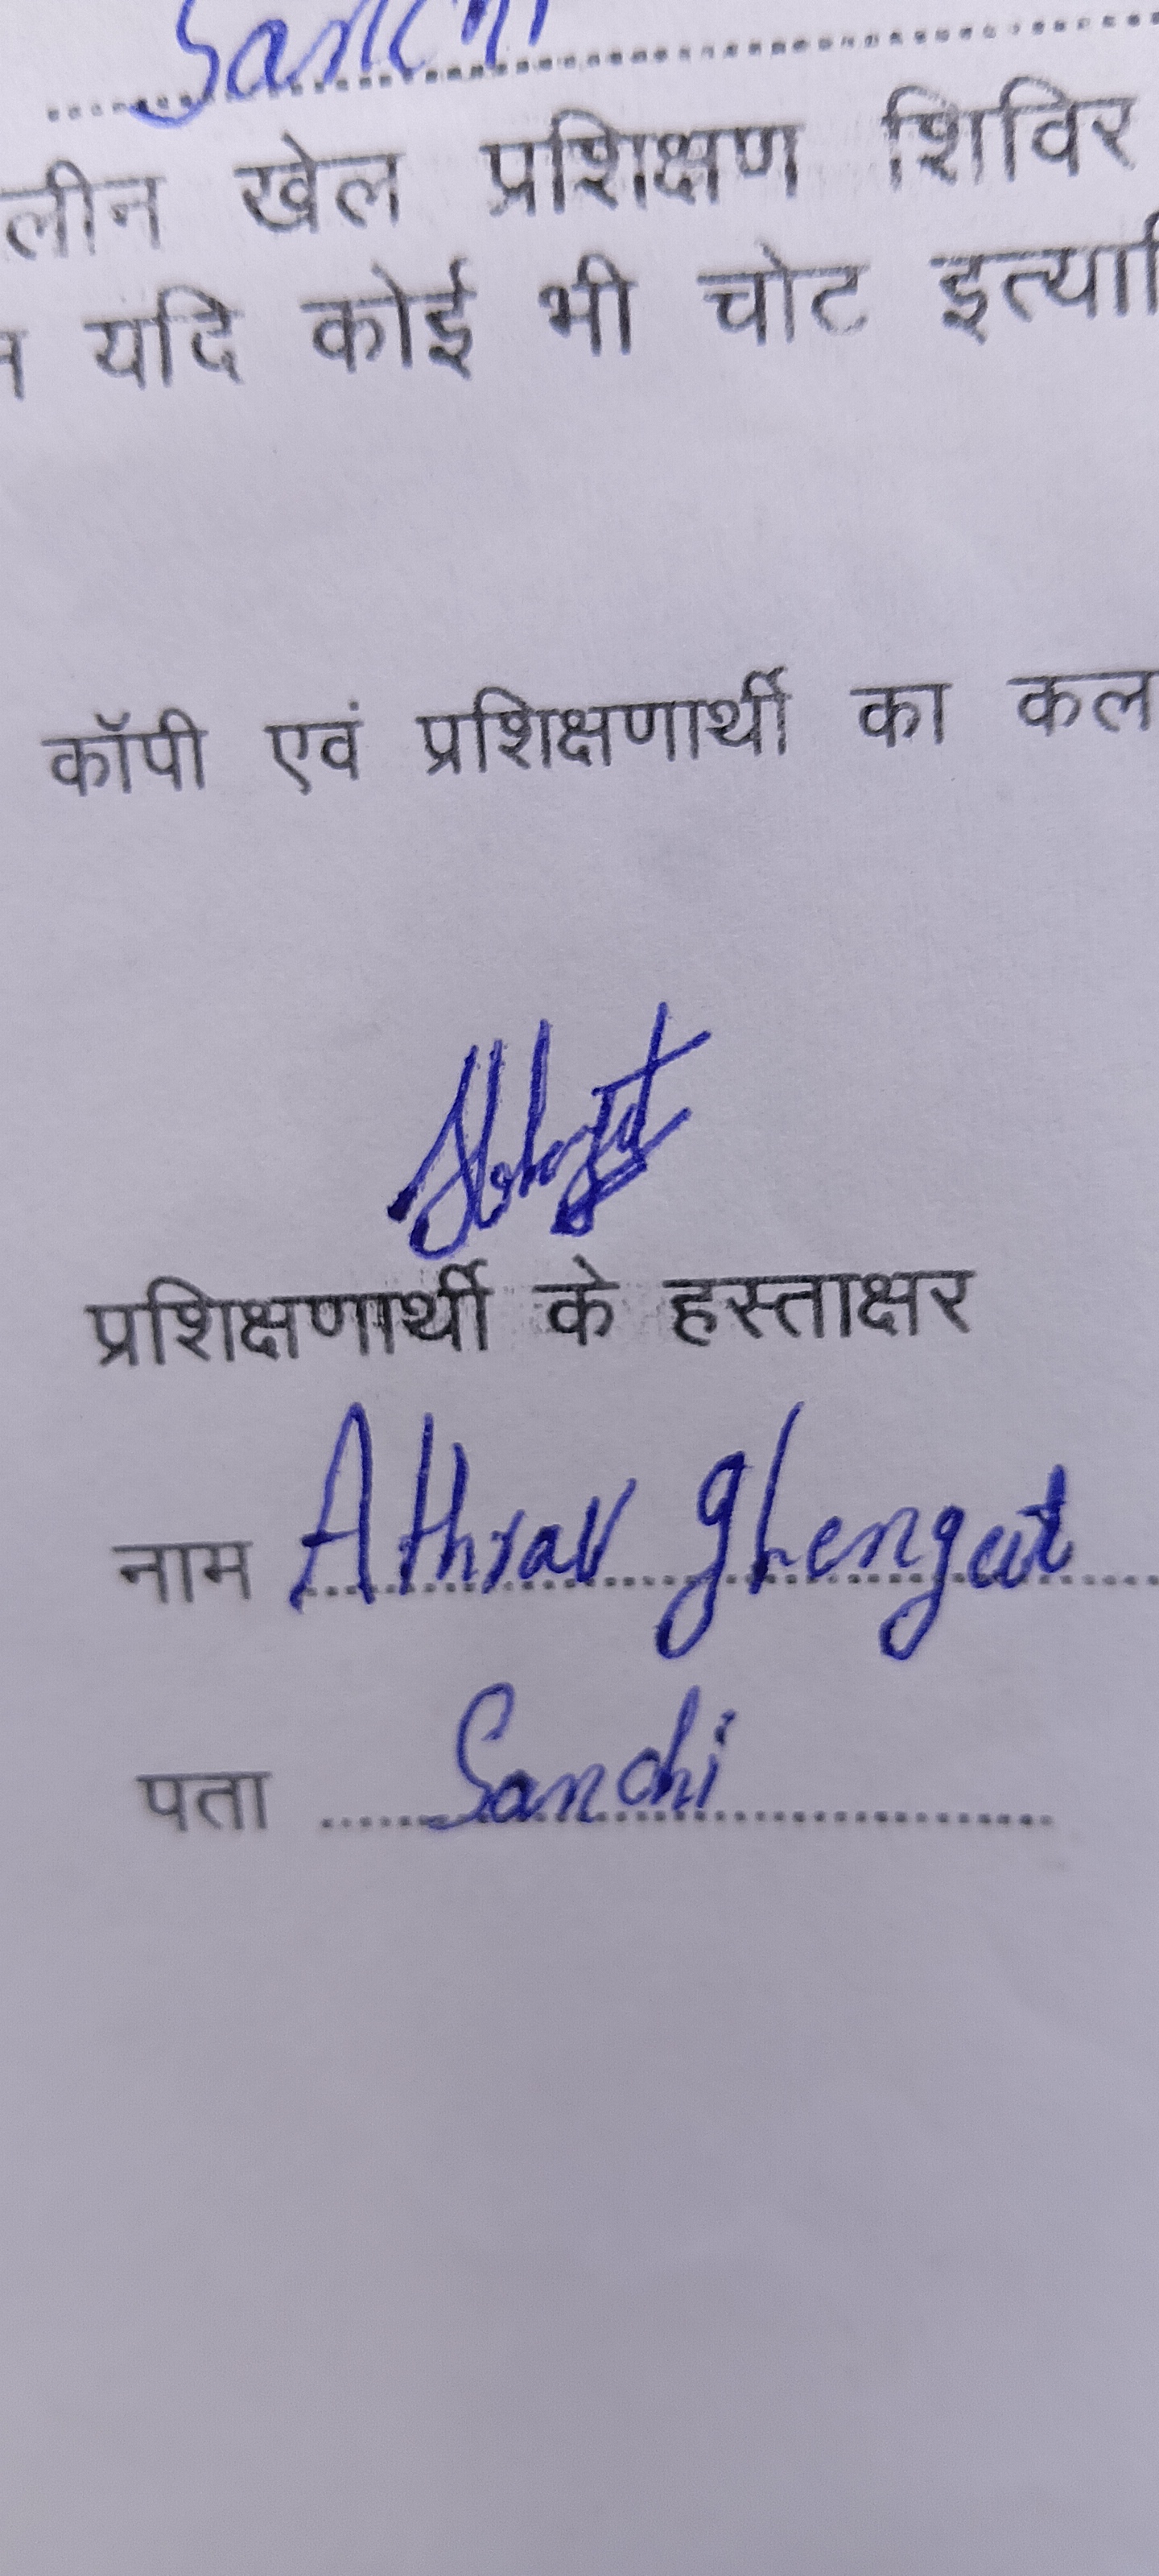 Sanchi
लीन खेल प्रशिक्षण शिविर
यदि कोई भी चोट इत्यादि
कॉपी एवं प्रशिक्षणार्थी का कल
प्रशिक्षणार्थी के हस्ताक्षर
नाम Athrav ghengat
पता Sanchi